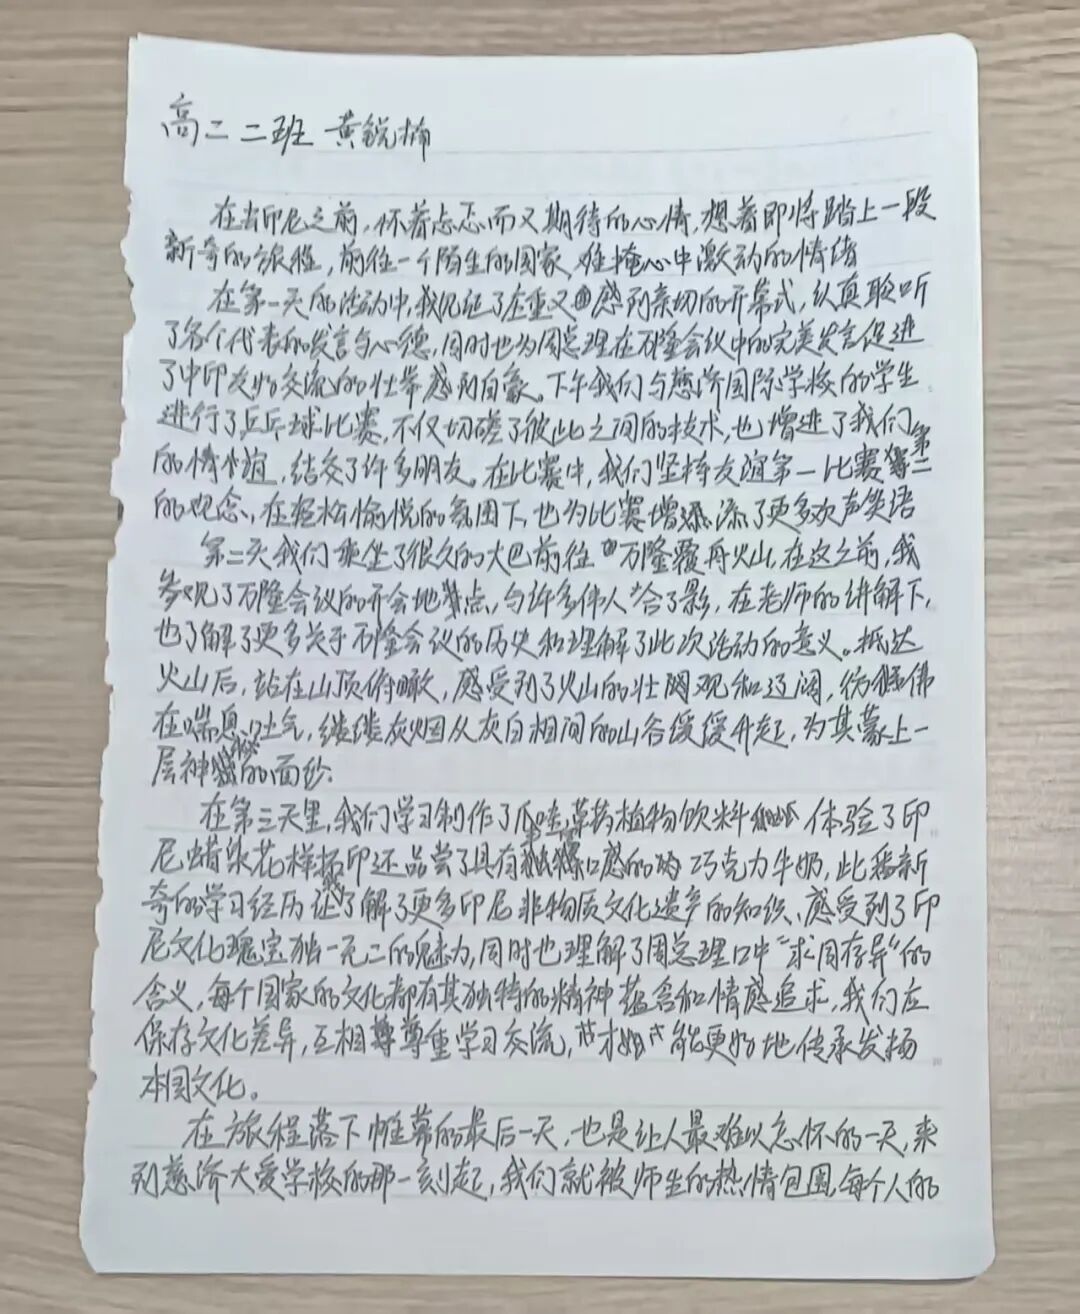 高二二班 黄锐楠
在去印尼之前，怀着忐忑而又期待的心情，想着即将踏上一段
新奇的旅程，前往一个陌生的国家 难掩心中激动的情绪
在第一天的活动中，我见证了庄重又感到亲切的开幕式，认真聆听
了各个代表的发言与心德，同时也为周总理在万隆会议中的完美发言促进
了中印友好交流的壮举感到自豪。下午我们与慈济国际学校的学生
进行了乒乓球比赛，不仅切磋了彼此之间的技术，也增进了我们
的情谊，结交了许多朋友。在比赛中，我们坚持友谊第一比赛第二
的观念，在轻松愉悦的氛围下，也为比赛增添了更多欢声笑语
第二天我们乘坐了很久的大巴前往万隆覆舟火山，在这之前，我
参观了万隆会议的开会地点，与许多伟人合了影，在老师的讲解下，
也了解了更多关于万隆会议的历史和理解了此次活动的意义。抵达
火山后，站在山顶俯瞰，感受到了火山的壮观和辽阔，仿佛
在喘息吐气，缕缕灰烟从灰白相间的山谷缓缓升起，为其蒙上一
层神秘的面纱.
在第三天里，我们学习制作了爪哇草药植物饮料 体验了印
尼蜡染花样拓印还品尝了具有口感的巧克力牛奶，此番新
奇的学习经历让我了解了更多印尼非物质文化遗产的知识、感受到了印
尼文化瑰宝独一无二的魅力，同时也理解了周总理口中“求同存异”的
含义，每个国家的文化都有其独特的精神蕴含和情感追求，我们应
保存文化差异，互相尊重学习交流，才能更好地传承发扬
本国文化。
在旅程落下帷幕的最后一天，也是让人最难以忘怀的一天，来
到慈济大爱学校的那一刻起，我们就被师生的热情包围，每个人的